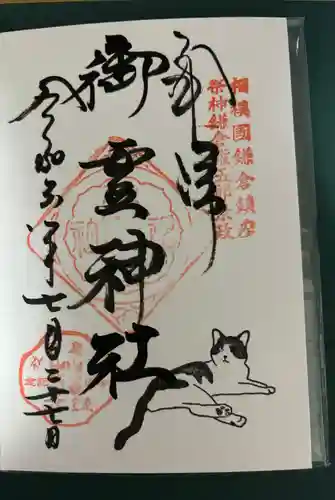 奉拝
相模國鎌倉鎮座
祭神鎌倉権五郎景政
御霊神社
令和六年七月二十七日